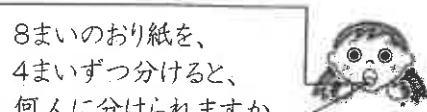 8まいのおり紙を、
4まいずつ分けると、
何人に分けられますか